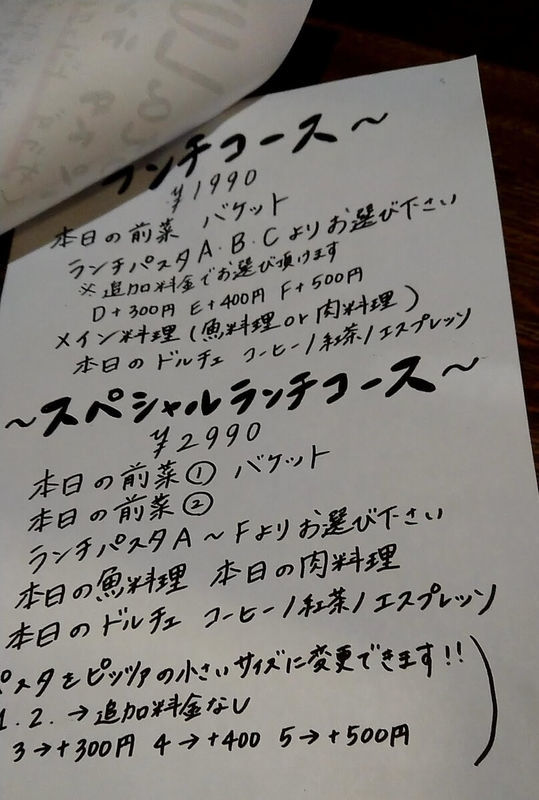 ランチコース～
¥1990
本日の前菜 バケット
ランチパスタA.B.Cよりお選び下さい
※追加料金でお選び頂けます
D+300円 E+400円 F+500円
メイン料理(魚料理or肉料理)
本日のドルチェ コーヒー/紅茶/エスプレッソ
～スペシャルランチコース～
¥2990
本日の前菜① バケット
本日の前菜②
ランチパスタA～Fよりお選び下さい
本日の魚料理 本日の肉料理
本日のドルチェ コーヒー/紅茶/エスプレッソ
パスタをピッツァの小さいサイズに変更できます!!
1.2.→追加料金なし
3→+300円 4→+400 5→+500円)